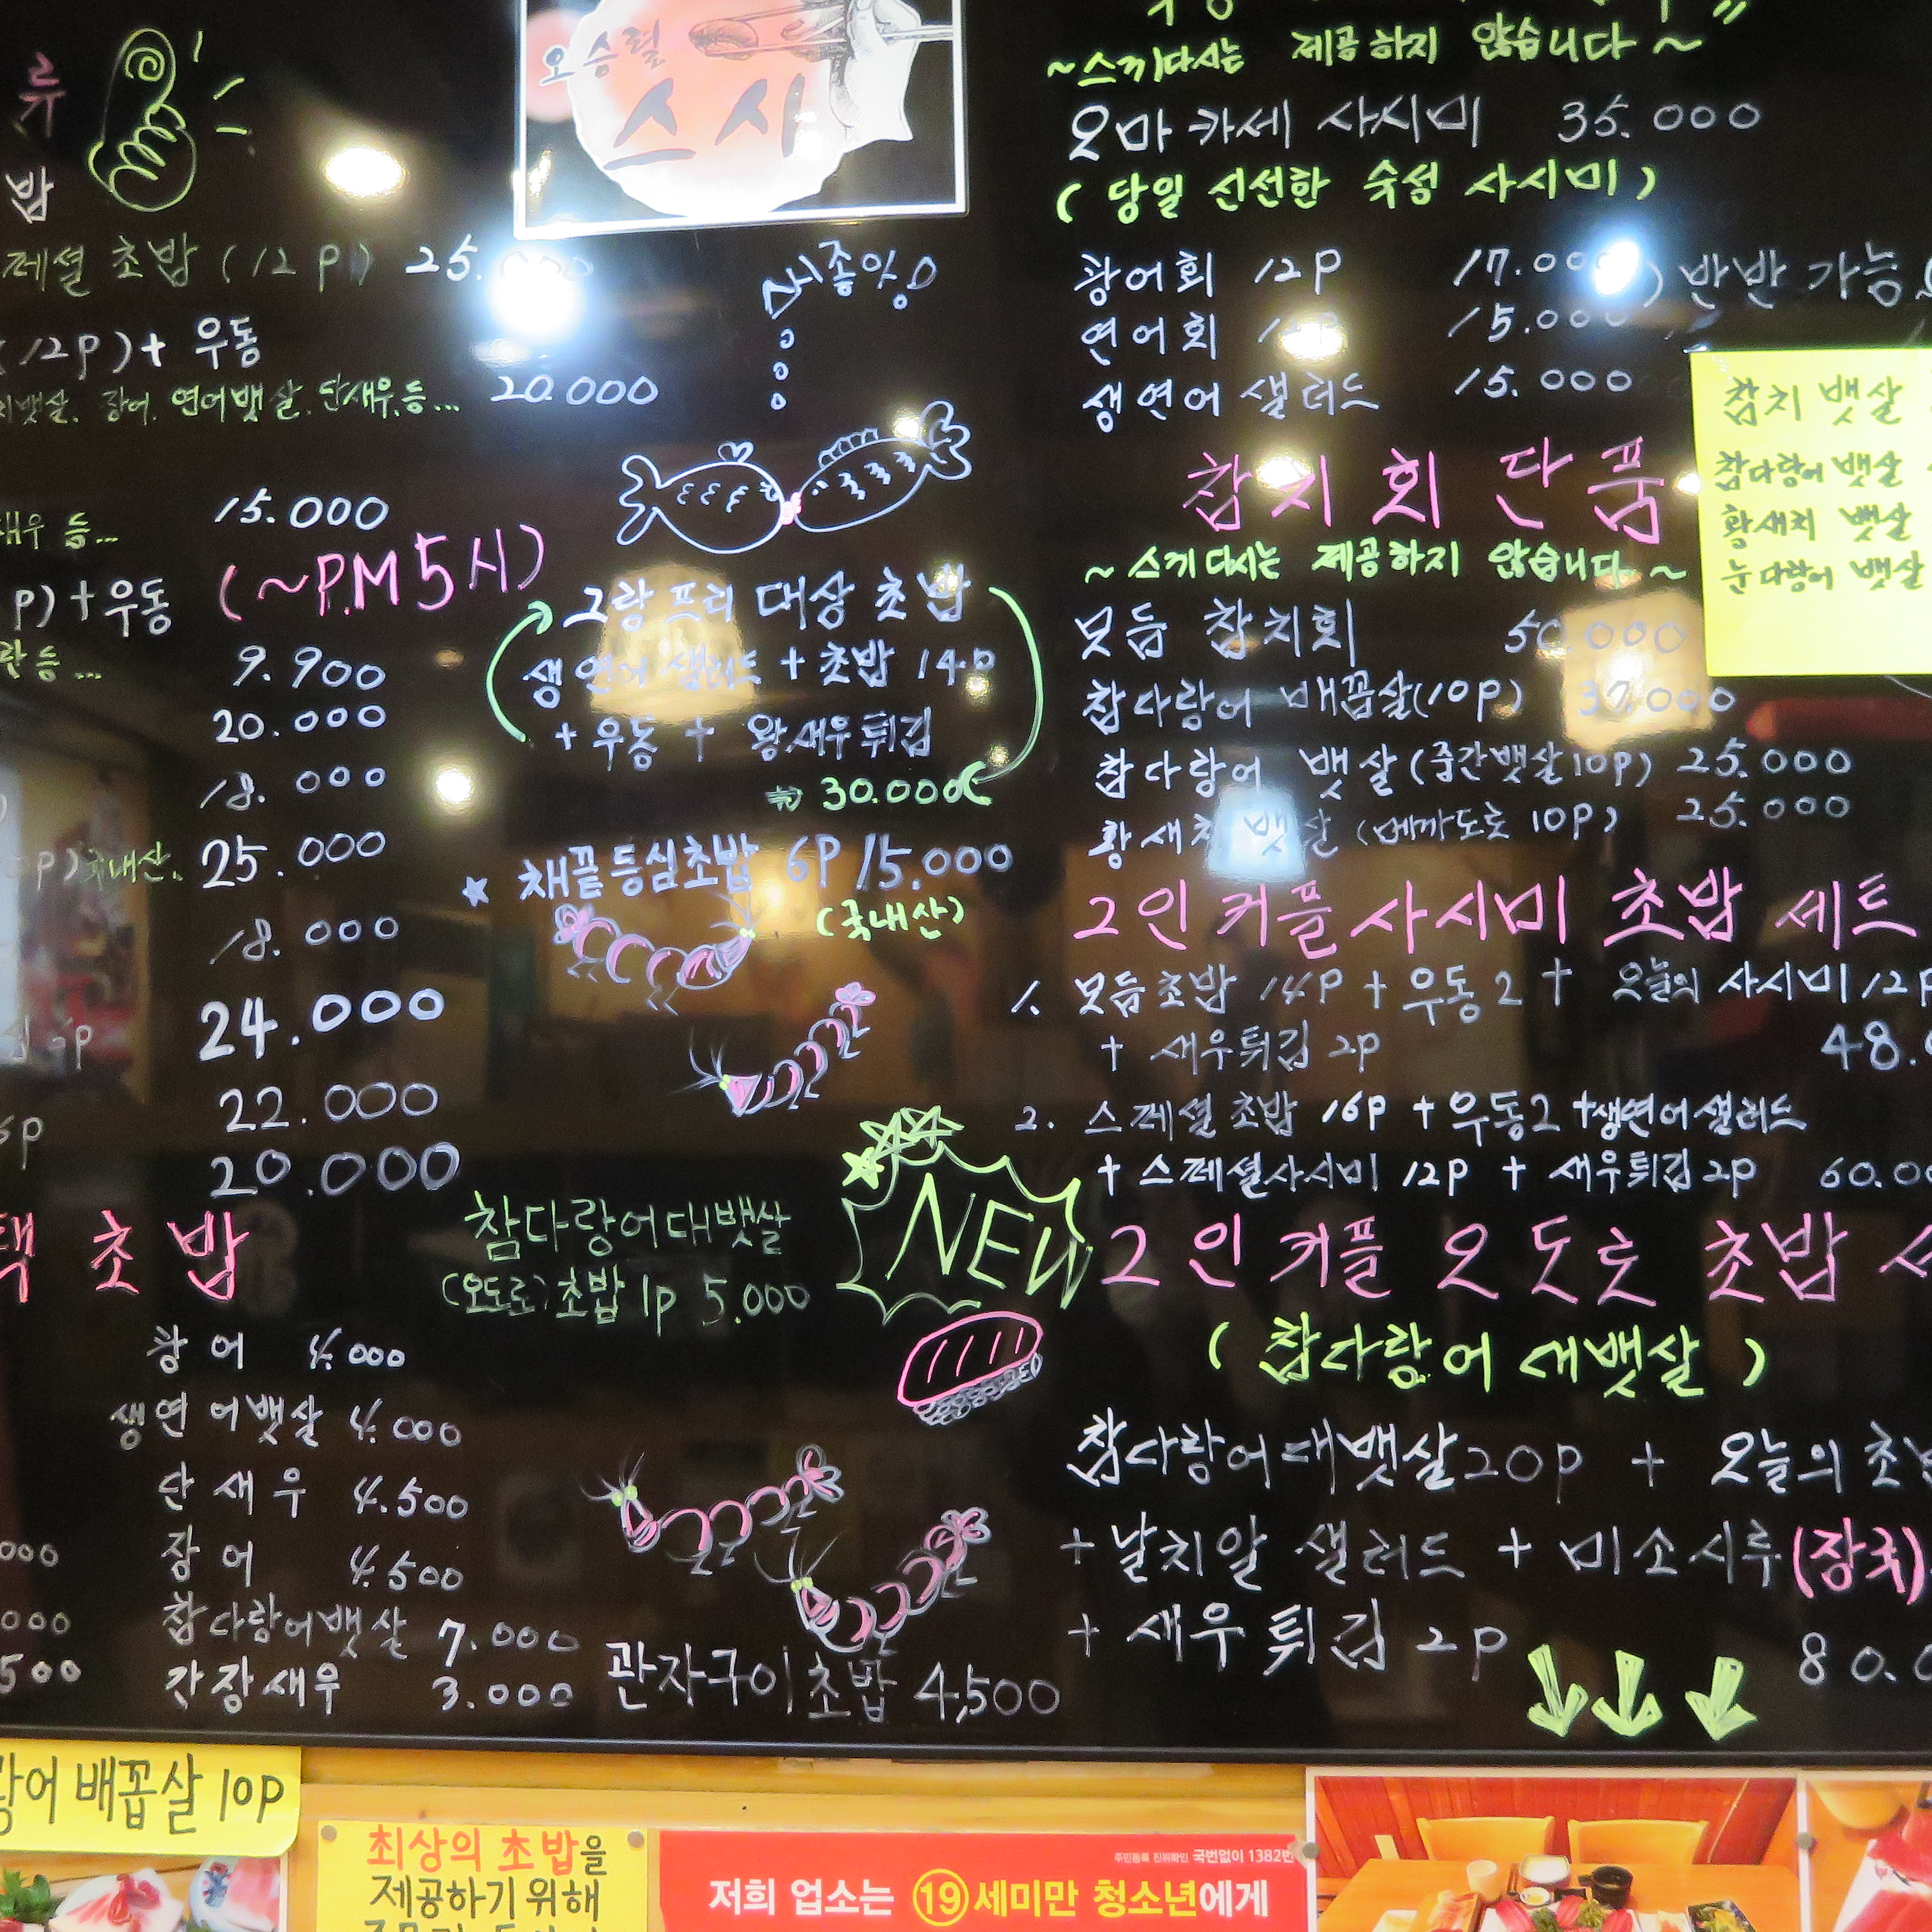 류
밥
페셜 초밥 (12p) 25.
(12p)+ 우동
뱃살. 장어. 연어뱃살. 단새우.등... 20.000
새우 등... 15.000
(~P.M 5시)
p) + 우동
란 등 ... 9.900
20.000
18.000
0p) 국내산. 25.000
18.000
24.000
22.000
6p
20.000
택 초밥
광어 4.000
생연어뱃살 4.000
단새우 4.500
장어 4.500
참다랑어뱃살 7.000
간장새우 3.000
000
000
500
오승렬
스시
그랑프리 대상 초밥
생연어 샐러드 + 초밥 14p
+ 우동 + 왕새우튀김
30.000
채끝등심초밥 6P 15.000
(국내산)
참다랑어대뱃살
(오도로)초밥 1p 5.000
NEW
관자구이초밥 4,500
~스끼다시는 제공하지 않습니다~
오마카세 사시미 35.000
(당일 신선한 숙성 사시미)
광어회 12P 17.000
반반 가능
연어회 15.000
생연어 샐러드 15.000
참치회 단품
~스끼다시는 제공하지 않습니다~
모듬 참치회 50.000
참다랑어 배꼽살(10p) 37.000
참다랑어 뱃살(중간뱃살10p) 25.000
황새치 뱃살 (메까도로 10p) 25.000
참치 뱃살
참다랑어 뱃살
황새치 뱃살
눈다랑어 뱃살
2인 커플 사시미 초밥 세트
1. 모듬초밥 14P + 우동2 + 오늘의 사시미 12p
+ 새우튀김 2p 48.
2. 스페셜 초밥 16p + 우동2 +생연어샐러드
+ 스페셜사시미 12p + 새우튀김2p 60.00
2인 커플 오도로 초밥
(참다랑어 대뱃살)
참다랑어대뱃살20p + 오늘의 초밥
+ 날치알 샐러드 + 미소시루(장국)
+ 새우튀김 2p 80.0
랑어 배꼽살 10p
최상의 초밥을
제공하기 위해
주민등록 진위확인 국번없이 1382번
저희 업소는 19세미만 청소년에게